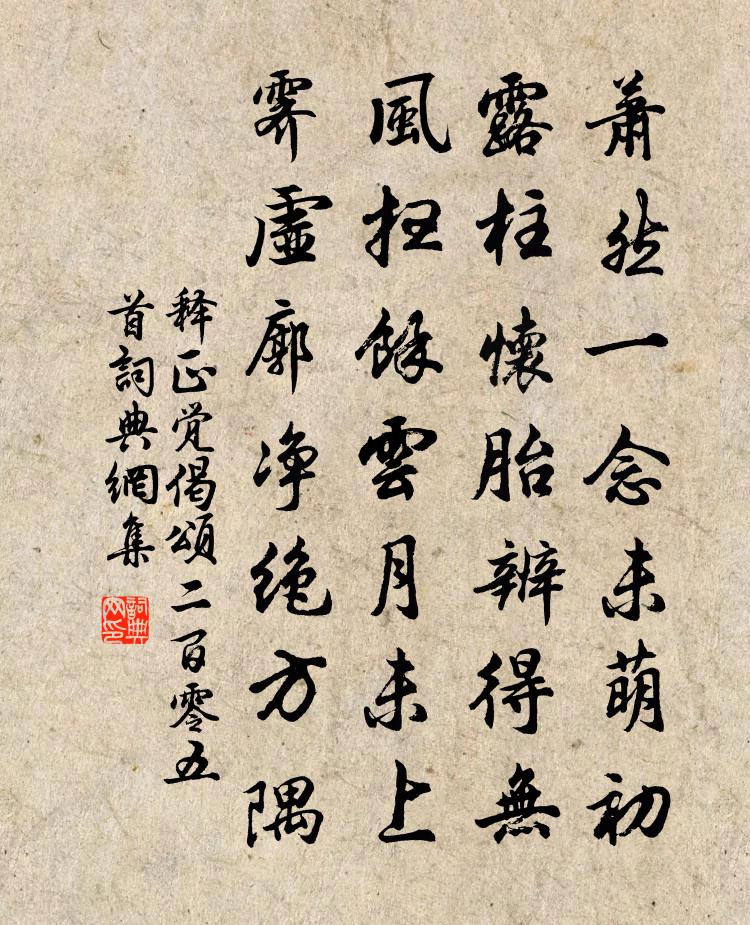 蕭然一念未萌初
露柱懷胎辨得無
風扫餘雲月未上
霁虛廓净绝方隅
释正觉偈頌二百零五
首詞典網集
詞典
网印